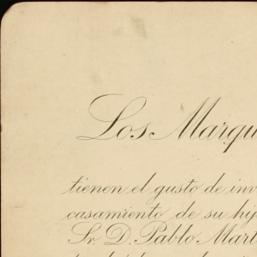 Los Marqu
tienen el gusto de inv
casamiento de su hij
Sr. D. Pablo Mart